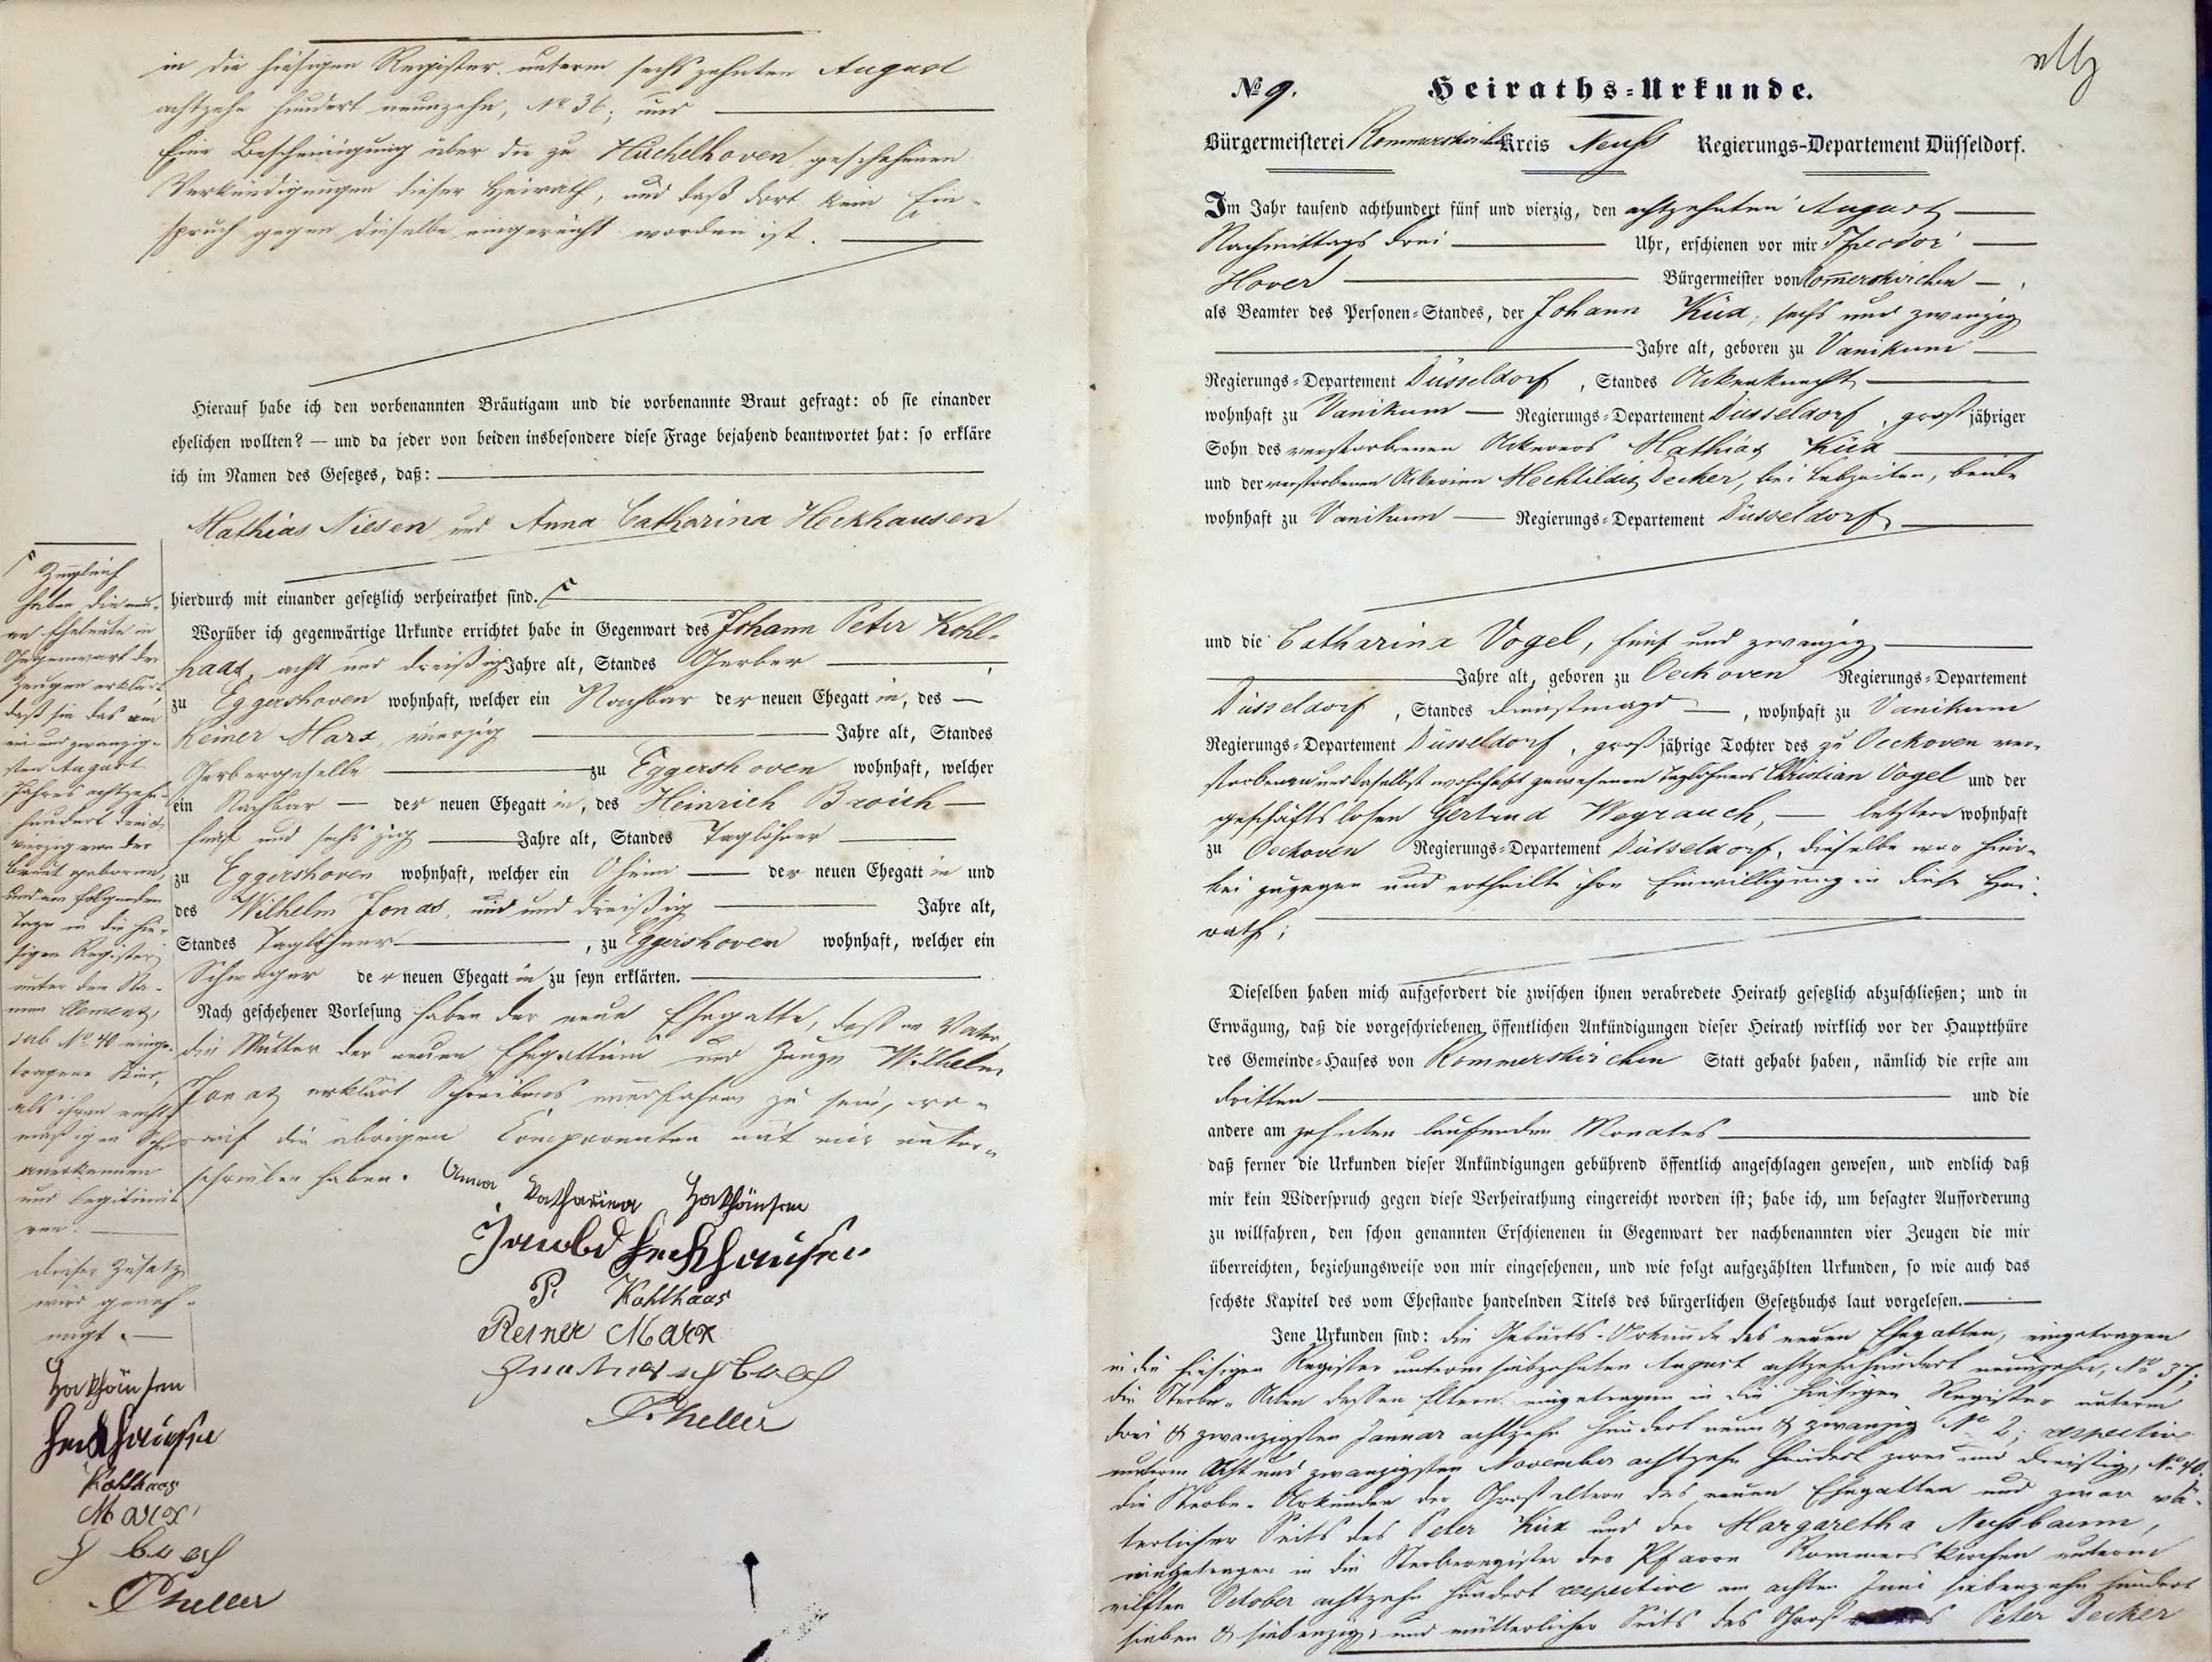 in die hiesigen Register unterm sechszehnten August
achtzehn hundert neunzehn, No 36; und
Eine Bescheinigung über die zu Hüchelhoven geschehenen
Verkündigungen dieser Heirath, und daß dort kein Ein-
spruch gegen dieselbe eingereicht worden ist.
Hierauf habe ich den vorbenannten Bräutigam und die vorbenannte Braut gefragt: ob sie einander
ehelichen wollten? — und da jeder von beiden insbesondere diese Frage bejahend beantwortet hat: so erkläre
ich im Namen des Gesetzes, daß:
Mathias Niesen und Anna Catharina Heckhausen
hierdurch mit einander gesetzlich verheirathet sind.
Worüber ich gegenwärtige Urkunde errichtet habe in Gegenwart des Johann Peter Kohl-
haas, acht und dreißig Jahre alt, Standes Gerber
zu Eggershoven wohnhaft, welcher ein Nachbar der neuen Ehegattin, des
Reiner Marx, vierzig Jahre alt, Standes
Gerbergeselle zu Eggershoven wohnhaft, welcher
ein Nachbar der neuen Ehegattin, des Heinrich Broich
fünf und sechszig Jahre alt, Standes Taglöhner
zu Eggershoven wohnhaft, welcher ein Oheim der neuen Ehegattin und
des Wilhelm Jonas, und dreißig Jahre alt,
Standes Taglöhner, zu Eggershoven wohnhaft, welcher ein
Schwager der neuen Ehegattin zu seyn erklärten.
Nach geschehener Vorlesung haben der neue Ehegatte, dessen Vater,
die Mutter der neuen Ehegattinn und Zeuge Wilhelm
Jonas erklärt Schreibens unerfahren zu sein, wo-
rauf die übrigen Comparenten mit mir unter-
schrieben haben. Anna Katharina Heckhausen
Jacob Heckhausen
P. Kohlhaas
Reiner Marx
Zugleich
haben die neu-
en Eheleute in
Gegenwart der
Zeugen erklärt
daß sie das am
ein und zwanzig-
sten August
Jahres achtzehn-
hundert drei &
vierzig von der
Braut geboren,
und am folgenden
Tage in die hie-
sigen Register
unter dem Na-
men Clemens,
sub No 40 einge-
tragene Kind,
als ihren recht-
mäßigen Sohn
anerkennen
und legitimi-
ren.
dieser Zusatz
wird geneh-
migt.
Heckhausen
Heckhausen
Kohlhaas
Marx
No 9. Heiraths-Urkunde.
Bürgermeisterei Rommerskirchen Kreis Neuß Regierungs-Departement Düsseldorf.
Im Jahr tausend achthundert fünf und vierzig, den achtzehnten August
Nachmittags drei Uhr, erschienen vor mir Theodor
Hover Bürgermeister von Romerskirchen
als Beamter des Personen-Standes, der Johann Küx, sechs und zwanzig
Jahre alt, geboren zu Vanikum
Regierungs-Departement Düsseldorf, Standes Ackerknecht
wohnhaft zu Vanikum Regierungs-Departement Düsseldorf, großjähriger
Sohn des verstorbenen Ackerers Mathias Küx
und der verstorbenen Ackerinn Mechtildis Decker, bei Lebzeiten, beide
wohnhaft zu Vanikum Regierungs-Departement Düsseldorf,
und die Catharina Vogel, fünf und zwanzig
Jahre alt, geboren zu Oeckoven Regierungs-Departement
Düsseldorf, Standes Dienstmagd, wohnhaft zu Vanikum
Regierungs-Departement Düsseldorf, großjährige Tochter des zu Oeckoven ver-
storbenen und daselbst wohnhaft gewesenen Taglöhners Christian Vogel und der
geschäftslosen Gertrud Weyrauch, letztere wohnhaft
zu Oeckoven Regierungs-Departement Düsseldorf, dieselbe war hier-
bei zugegen und ertheilte ihre Einwilligung in diese Hei-
rath;
Dieselben haben mich aufgefordert die zwischen ihnen verabredete Heirath gesetzlich abzuschließen; und in
Erwägung, daß die vorgeschriebenen öffentlichen Ankündigungen dieser Heirath wirklich vor der Hauptthüre
des Gemeinde-Hauses von Rommerskirchen Statt gehabt haben, nämlich die erste am
dritten und die
andere am zehnten laufenden Monates
daß ferner die Urkunden dieser Ankündigungen gebührend öffentlich angeschlagen gewesen, und endlich daß
mir kein Widerspruch gegen diese Verheirathung eingereicht worden ist; habe ich, um besagter Aufforderung
zu willfahren, den schon genannten Erschienenen in Gegenwart der nachbenannten vier Zeugen die mir
überreichten, beziehungsweise von mir eingesehenen, und wie folgt aufgezählten Urkunden, so wie auch das
sechste Kapitel des vom Ehestande handelnden Titels des bürgerlichen Gesetzbuchs laut vorgelesen.
Jene Urkunden sind: die Geburts-Urkunde des neuen Ehegatten, eingetragen
in die hiesigen Register unterm siebzehnten August achtzehnhundert neunzehn, No 37;
die Sterbe-Akten dessen Eltern eingetragen in die hiesigen Register unterm
drei & zwanzigsten Januar achtzehn hundert neun & zwanzig No 2; respective
unterm Acht und zwanzigsten November achtzehn hundert zwei und dreißig, No 40.
die Sterbe-Urkunden der Großeltern des neuen Ehegatten und zwar vä-
terlicher Seits des Peter Küx und der Margaretha Nussbaum,
eingetragen in die Sterberegister der Pfarre Rommerskirchen unterm
eilften October achtzehn hundert respective am achten Juni siebenzehn hundert
sieben & siebenzig, und mütterlicher Seits des Peter Decker